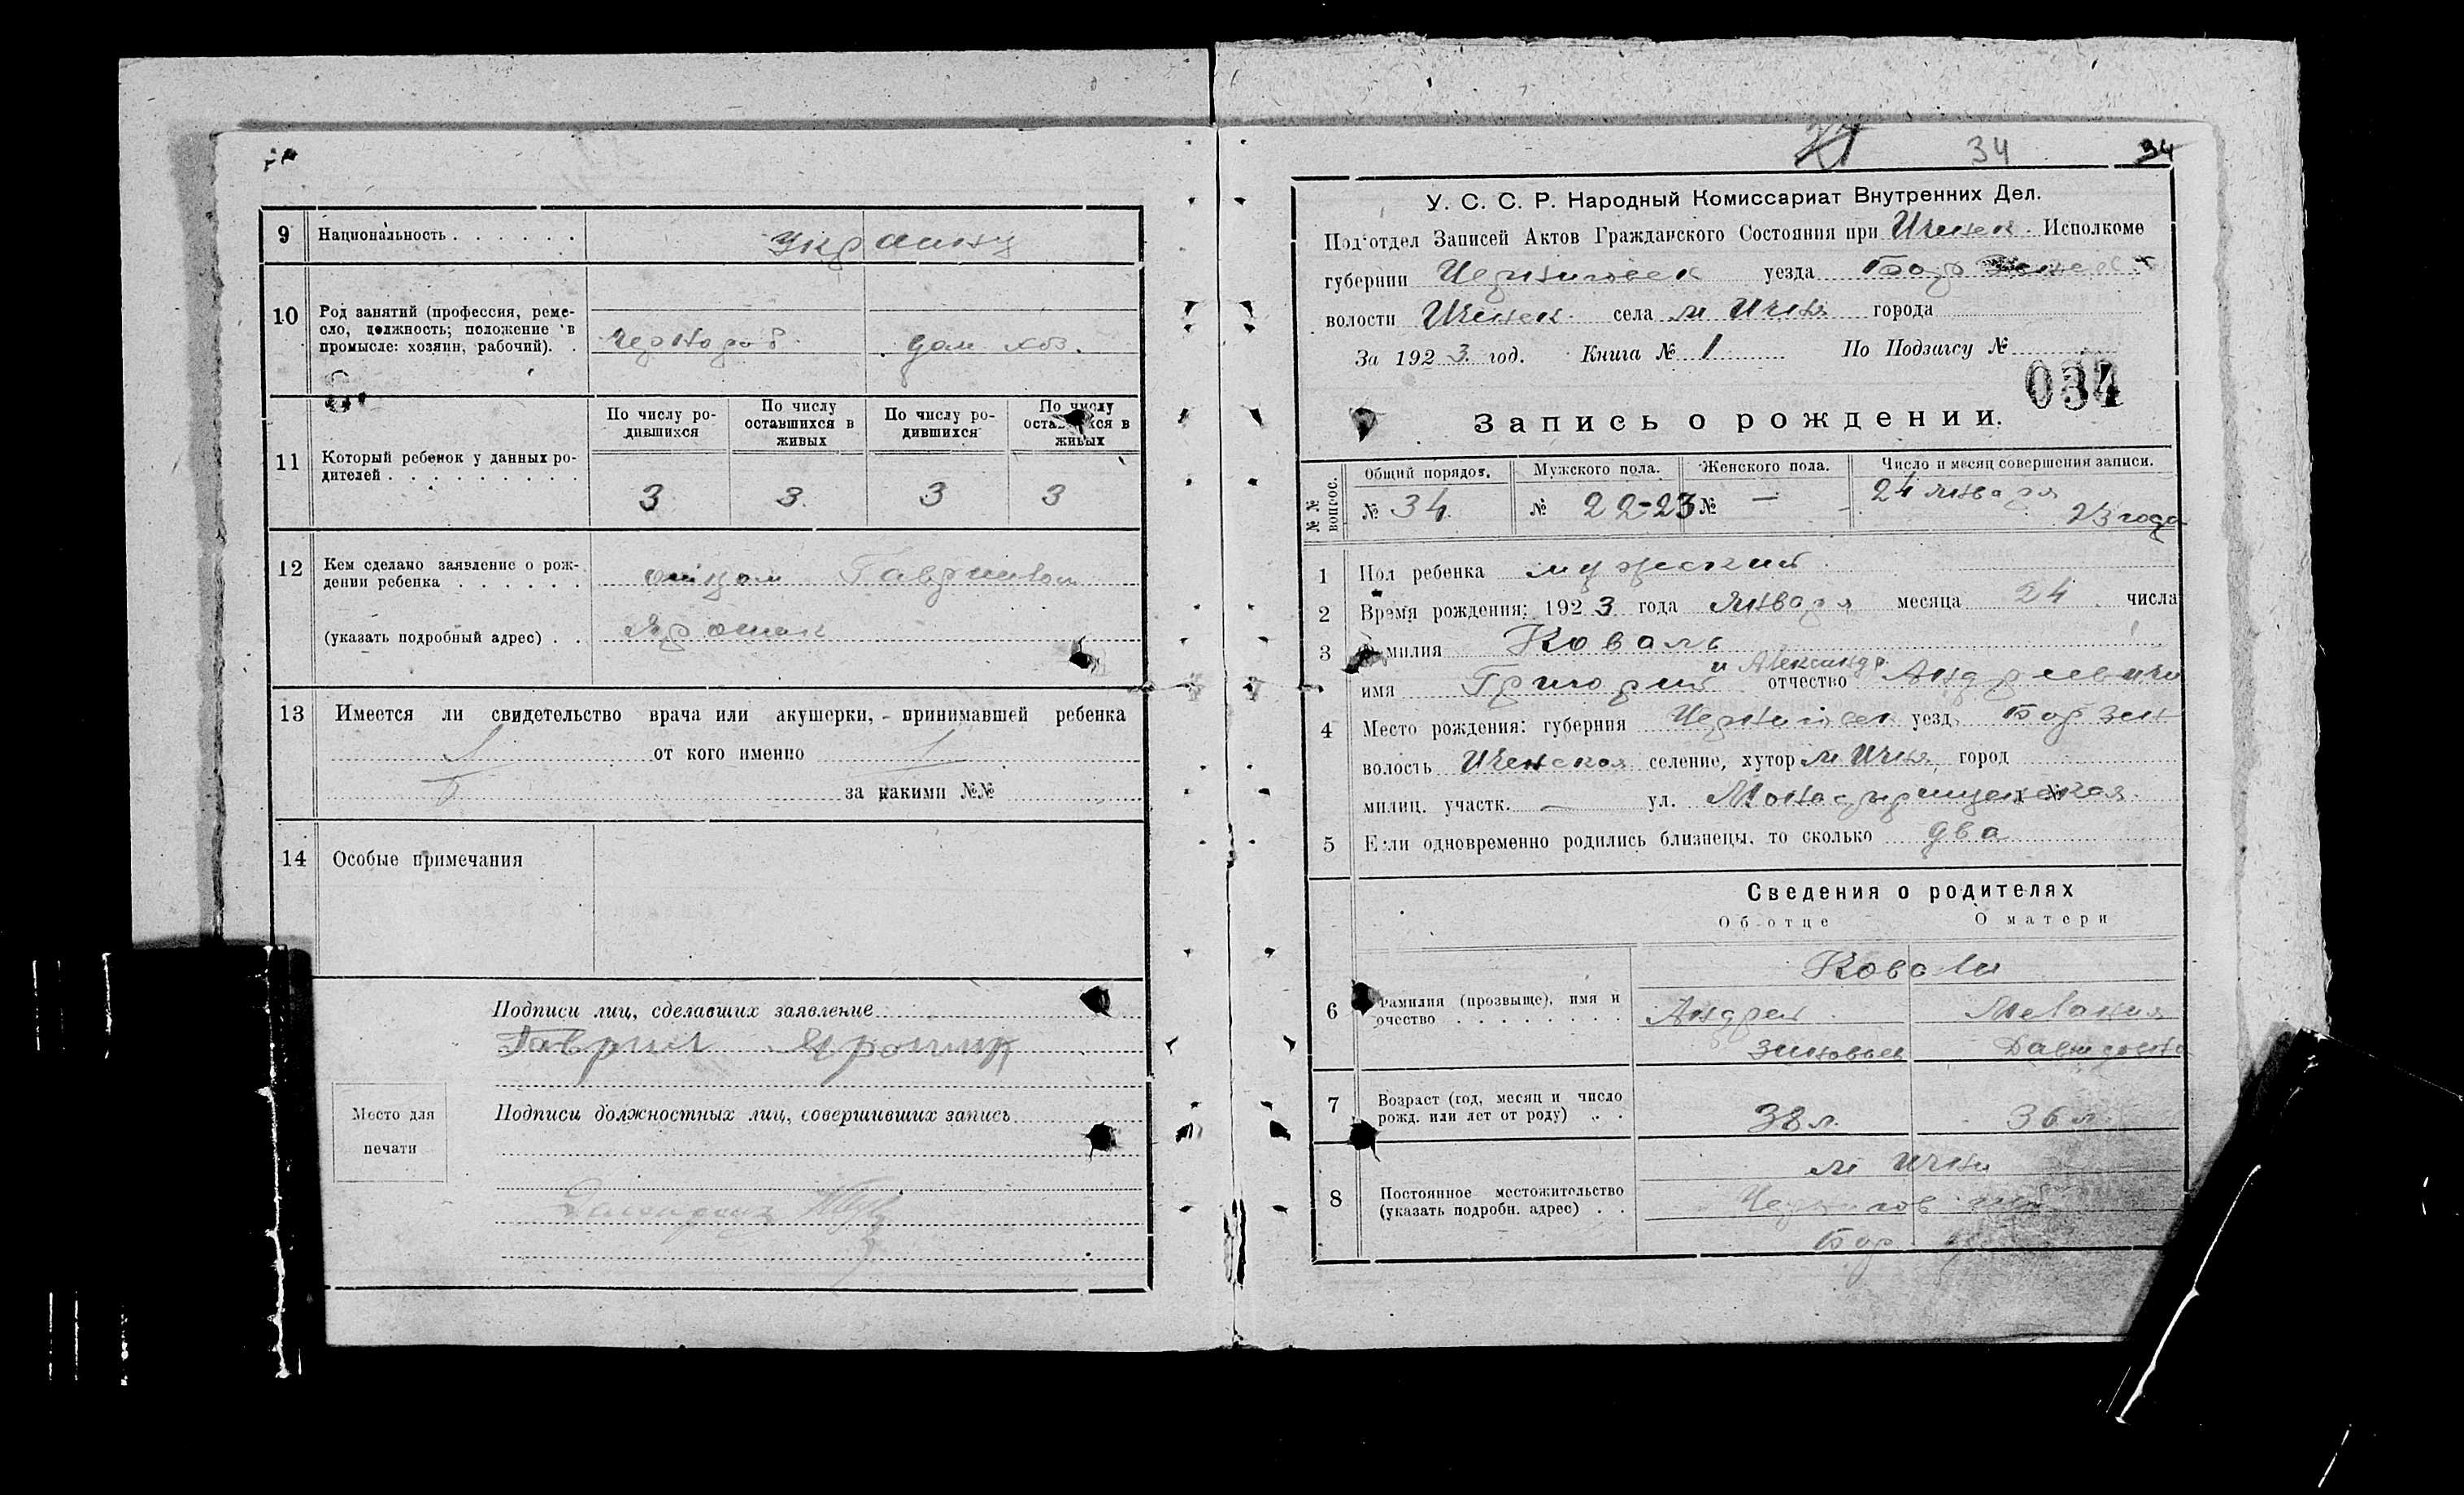 9 Национальность . . . . . . Украинц
10 Род занятий (профессия, реме-
сло, должность; положение в
промысле: хозяин, рабочий). . Чернораб. дом хоз.
11 Который ребенок у данных ро-
дителей . . . . . . . . . .
По числу ро-
дившихся
По числу
оставшихся в
живых
По числу ро-
дившихся
По числу
оставшихся в
живых
3 3. 3 3
12 Кем сделано заявление о рож-
дении ребенка . . . . . . отцом Гавриилом
(указать подробный адрес) . .
13 Имеется ли свидетельство врача или акушерки, принимавшей ребенка
от кого именно
за какими №№
14 Особые примечания
Подписи лиц, сделавших заявление
Гавриил
Место для
печати
Подписи должностных лиц, совершивших запись
34 34
У. С. С. Р. Народный Комиссариат Внутренних Дел.
Под'отдел Записей Актов Гражданского Состояния при Ичнек. Исполкоме
губернии Черниговск уезда
волости Ичнек. села м Ичня города
За 1923 год. Книга № 1 По Подзагсу №
034
Запись о рождении.
№№ вопрос.
Общий порядок. Мужского пола. Женского пола. Число и месяц совершения записи.
№ 34 № 22-23 № — 24 января
23 года
1 Пол ребенка мужеский
2 Время рождения: 1923 года Января месяца 24 числа
3 Фамилия Коваль
и Александр
имя Григорий отчество Андреевичи
4 Место рождения: губерния Черниговск уезд Борзен
волость Иченская селение, хутор м Ичня, город
милиц. участк. — ул. Монастырищенская
5 Если одновременно родились близнецы, то сколько два
Сведения о родителях
Об отце О матери
Ковали
6 Фамилия (прозвище), имя и
отчество . . . . . . . . Андрей Мелания
Зиновьев Давидовна
7 Возраст (год, месяц и число
рожд. или лет от роду) . . 38 л. 36 л.
м Ичня
8 Постоянное местожительство
(указать подробн. адрес) . . Чернигов губ
Бор. у